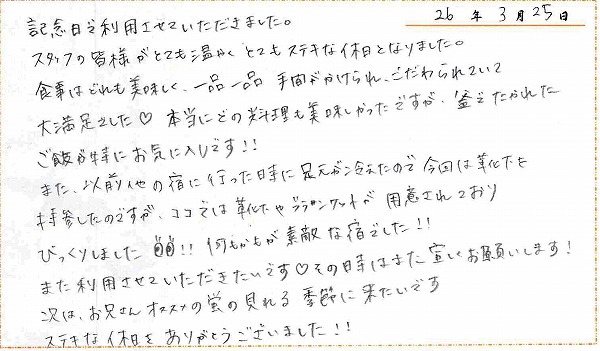 26年3月25日
記念日で利用させていただきました。
スタッフの皆様がとても温かく とてもステキな休日となりました。
食事はどれも美味しく、一品一品 手間がかけられ、こだわられていて
大満足でした♡ 本当にどの料理も美味しかったですが、釜でたかれた
ご飯が特にお気に入りです!!
また、以前他の宿に行った時に足元が冷えたので今回は靴下を
持参したのですが、ココでは靴下やブランケットが 用意されており
びっくりしました !! 何もかもが素敵な宿でした!!
また利用させていただきたいです♡その日時はまた宜しくお願いします!
次は、お兄さんオススメの蛍の見れる 季節に来たいです
ステキな休日をありがとうございました!!